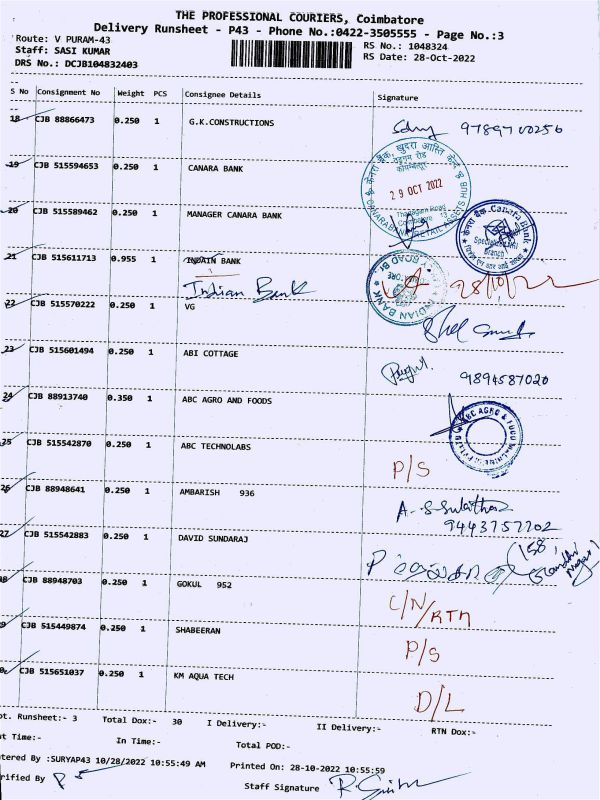 THE PROFESSIONAL COURIERS, Coimbatore
Delivery Runsheet - P43 - Phone No.:0422-3505555 - Page No.:3
Route: V PURAM-43
RS No.: 1048324
Staff: SASI KUMAR
RS Date: 28-Oct-2022
DRS No.: DCJB104832403
S No Consignment No Weight PCS Consignee Details Signature
18 CJB 88866473 0.250 1 G.K.CONSTRUCTIONS
19 CJB 515594653 0.250 1 CANARA BANK
29 OCT 2022
20 CJB 515589462 0.250 1 MANAGER CANARA BANK
21 CJB 515611713 0.955 1 INDAIN BANK
Indian Bank
28/10/22
22 CJB 515570222 0.250 1 VG
23 CJB 515601494 0.250 1 ABI COTTAGE
9894587020
24 CJB 88913740 0.350 1 ABC AGRO AND FOODS
25 CJB 515542870 0.250 1 ABC TECHNOLABS
P/S
26 CJB 88948641 0.250 1 AMBARISH 936
27 CJB 515542883 0.250 1 DAVID SUNDARAJ
8 CJB 88948703 0.250 1 GOKUL 952
C/N/RTN
9 CJB 515449874 0.250 1 SHABEERAN
P/S
CJB 515651037 0.250 1 KM AQUA TECH
D/L
ot. Runsheet:- 3 Total Dox:- 30 I Delivery:- II Delivery:- RTN Dox:-
ut Time:- In Time:- Total POD:-
tered By :SURYAP43 10/28/2022 10:55:49 AM Printed On: 28-10-2022 10:55:59
rified By
Staff Signature